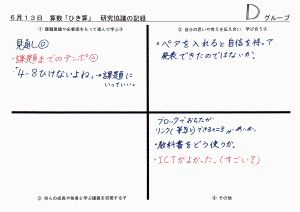 6月13日 算数「ひき算」 研究協議の記録
D グループ
① 課題意識や必要感をもって進んで学ぶ子
② 自分の思いや考えを伝え合い、学び合う子
見通し◎
・課題までのテンポ◎
・「4-8ひけないよね。」→課題に
いっていい。
・ペアを入れると自信を持って
発表できたのではないか。
ブロックでおちたが
・教科書をどう使うか。
・ICTがよかった。(すごい?)
③ 自らの成長や他者と学ぶ価値を自覚する子
④ その他